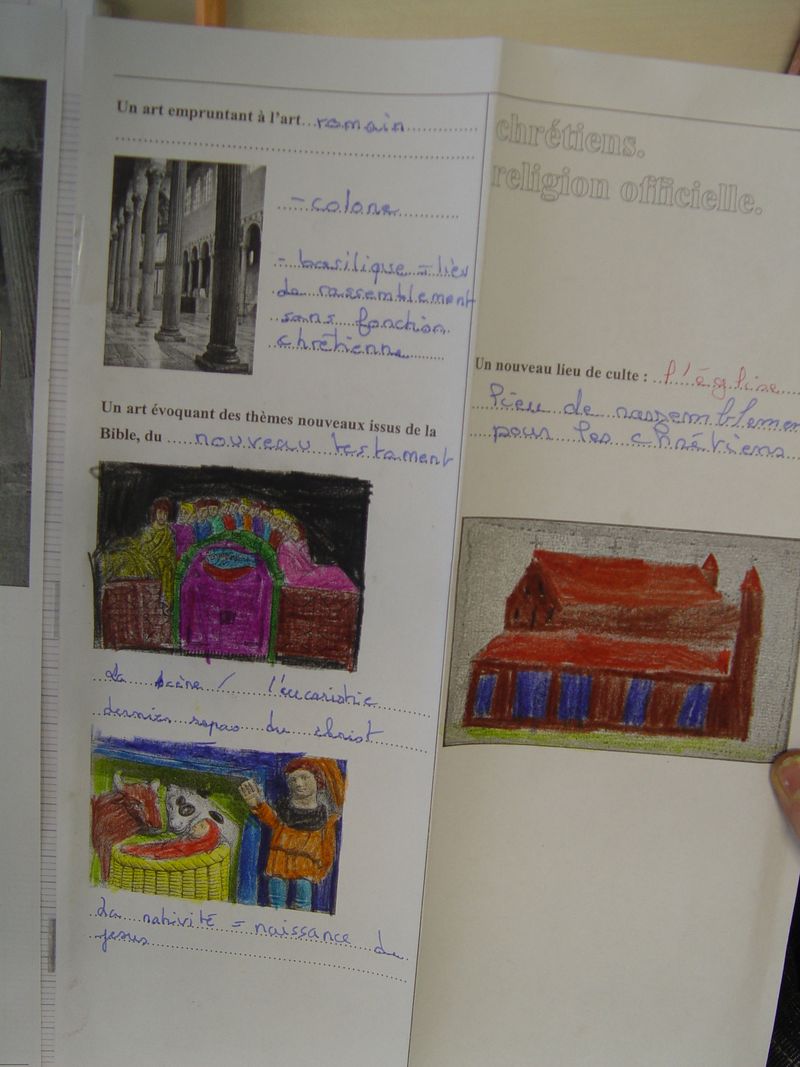 Un art empruntant à l'art...romain
- colone
- basilique = liev
de rassemblement
sans fonction
chrétienne
Un art évoquant des thèmes nouveaux issus de la
Bible, du ....nouveau testament
La scène / l'eucaristie
dernier repas du christ
La nativité = naissance de
jesus
chrétiens.
religion officielle.
Un nouveau lieu de culte : ..l'église
lieu de rassemblemen
pour les chrétiens